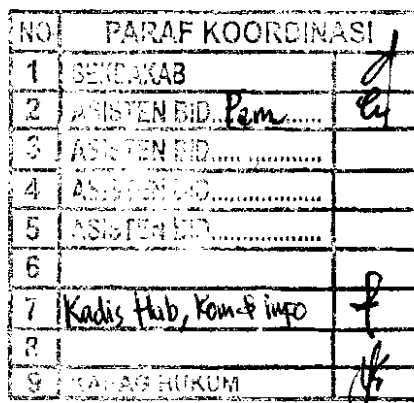 NO PARAF KOORDINASI
1 SEKDAKAB
2 ASISTEN BID..Pem......
3 ASISTEN BID..................
4 ASISTEN BID..................
5 ASISTEN BID..................
6
7 Kadis Hub, Kom & info
8
9 KABAG HUKUM